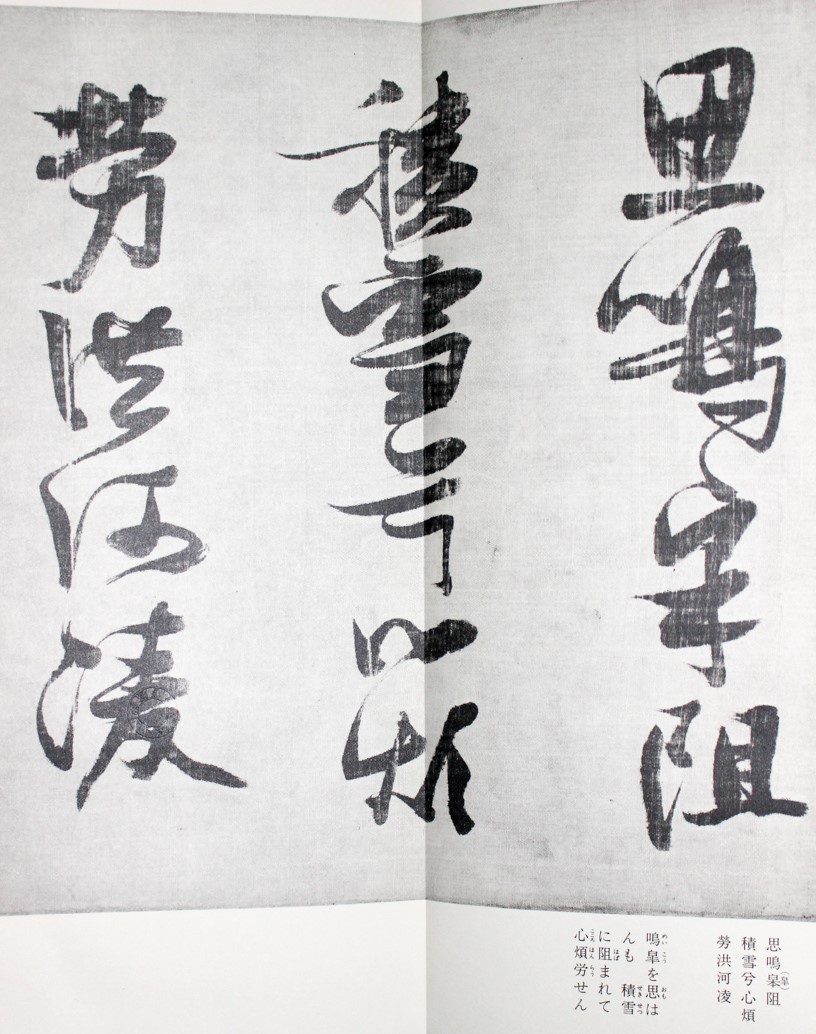 思鳴皋阻
積雪兮心煩
勞洪河凌
思鳴皋（皐）阻
積雪兮心煩
勞洪河凌
鳴皐を思は
んも　積雪
に阻まれて
心煩労せん